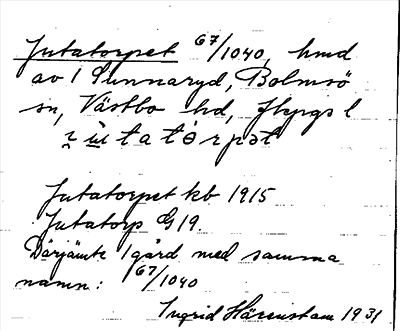 Jutatorpet 67/1040, hmd
av 1 Sunnaryd, Bolmsö
sn, Västbo hd, Jkpgs l
Jutatorpet kb 1915
Jutatorp G19.
Därjämte 1 gård med samma
namn: 67/1040
Ingrid Härenstam 1931